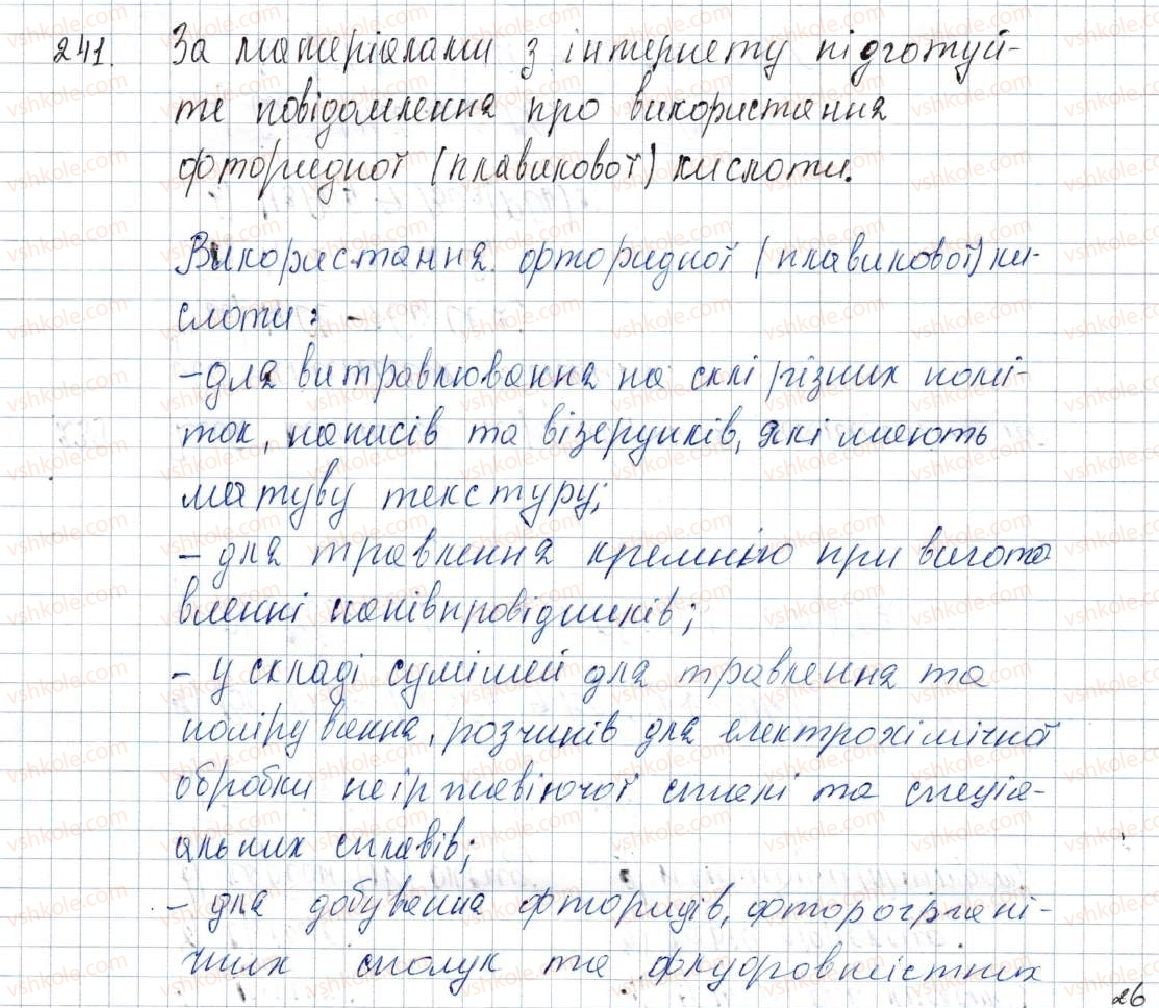 241. За матеріалами з інтернету підготуй-
те повідомлення про використання
фторидної (плавикової) кислоти.
Використання фторидної (плавикової) ки-
слоти: -
- для витравлювання на склі різних помі-
ток, написів та візерунків, які мають
матуву текстуру;
- для травлення кремнію при вигото
вленні напівпровідників;
- у складі сумішей для травлення та
полірування, розчинів для електрохімічної
обробки неіржавіючої сталі та спеціа-
альних сплавів;
- для добування фторидів, фторогргані-
чних сполук та флуоровмістних
26